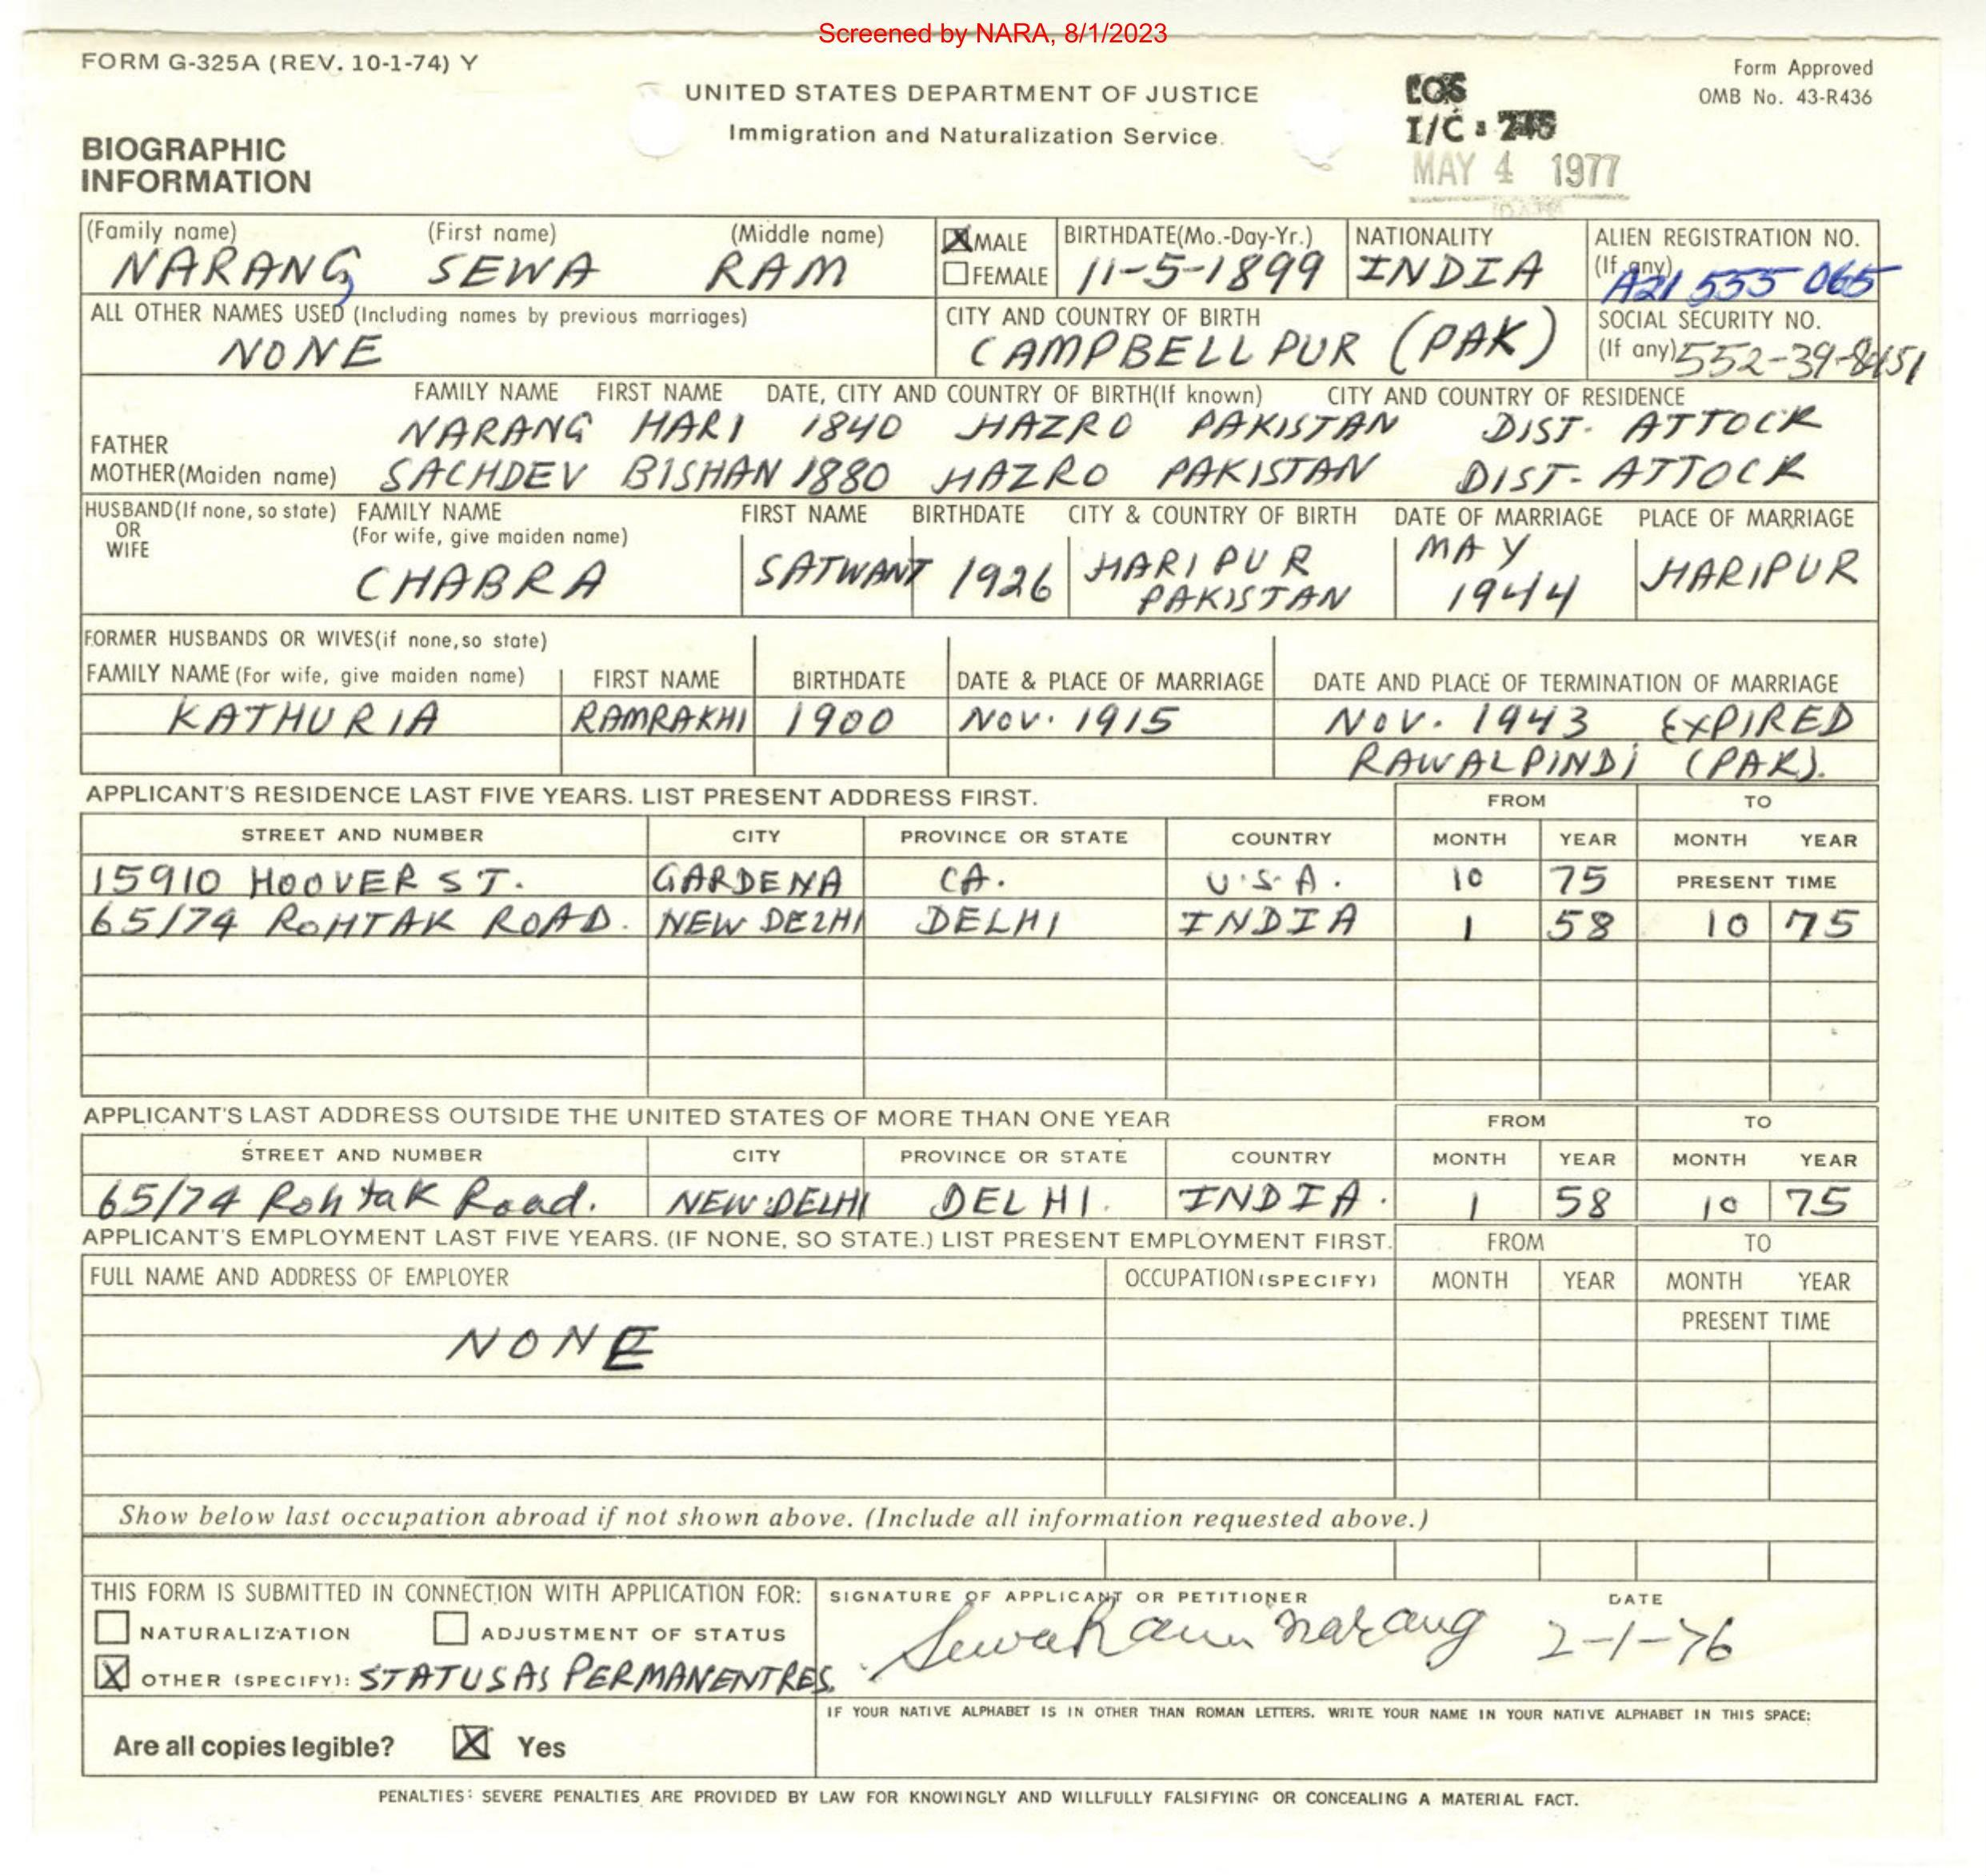 Screened by NARA, 8/1/2023
FORM G-325A (REV. 10-1-74) Y
Form Approved
OMB No. 43-R436
UNITED STATES DEPARTMENT OF JUSTICE
Immigration and Naturalization Service.
I/C:
MAY 4 1977
BIOGRAPHIC
INFORMATION
(Family name) (First name) (Middle name) X MALE BIRTHDATE(Mo.-Day-Yr.) NATIONALITY ALIEN REGISTRATION NO.
NARANG SEWA RAM FEMALE 11-5-1899 INDIA (If any) A21 555 065
ALL OTHER NAMES USED (Including names by previous marriages) CITY AND COUNTRY OF BIRTH SOCIAL SECURITY NO.
NONE CAMPBELLPUR (PAK) (If any) 552-39-
FAMILY NAME FIRST NAME DATE, CITY AND COUNTRY OF BIRTH(If known) CITY AND COUNTRY OF RESIDENCE
FATHER NARANG HARI 1840 HAZRO PAKISTAN DIST. ATTOCK
MOTHER(Maiden name) SACHDEV BISHAN 1880 HAZRO PAKISTAN DIST- ATTOCK
HUSBAND(If none, so state) FAMILY NAME FIRST NAME BIRTHDATE CITY & COUNTRY OF BIRTH DATE OF MARRIAGE PLACE OF MARRIAGE
OR (For wife, give maiden name)
WIFE
CHABRA SATWANT 1926 HARIPUR PAKISTAN MAY 1944 HARIPUR
FORMER HUSBANDS OR WIVES(if none, so state)
FAMILY NAME (For wife, give maiden name) FIRST NAME BIRTHDATE DATE & PLACE OF MARRIAGE DATE AND PLACE OF TERMINATION OF MARRIAGE
KATHURIA RAMRAKHI 1900 NOV. 1915 NOV. 1943 EXPIRED
RAWALPINDI (PAK).
APPLICANT'S RESIDENCE LAST FIVE YEARS. LIST PRESENT ADDRESS FIRST. FROM TO
STREET AND NUMBER CITY PROVINCE OR STATE COUNTRY MONTH YEAR MONTH YEAR
15910 HOOVER ST. GARDENA CA. U.S.A. 10 75 PRESENT TIME
65/74 ROHTAK ROAD. NEW DELHI DELHI INDIA 1 58 10 75
APPLICANT'S LAST ADDRESS OUTSIDE THE UNITED STATES OF MORE THAN ONE YEAR FROM TO
STREET AND NUMBER CITY PROVINCE OR STATE COUNTRY MONTH YEAR MONTH YEAR
65/74 Rohtak Road. NEW DELHI DELHI. INDIA. 1 58 10 75
APPLICANT'S EMPLOYMENT LAST FIVE YEARS. (IF NONE, SO STATE.) LIST PRESENT EMPLOYMENT FIRST. FROM TO
FULL NAME AND ADDRESS OF EMPLOYER OCCUPATION(SPECIFY) MONTH YEAR MONTH YEAR
PRESENT TIME
NONE
Show below last occupation abroad if not shown above. (Include all information requested above.)
THIS FORM IS SUBMITTED IN CONNECTION WITH APPLICATION FOR: SIGNATURE OF APPLICANT OR PETITIONER DATE
NATURALIZATION ADJUSTMENT OF STATUS Sewa Ram Narang 2-1-76
X OTHER (SPECIFY): STATUS AS PERMANENT RES.
IF YOUR NATIVE ALPHABET IS IN OTHER THAN ROMAN LETTERS, WRITE YOUR NAME IN YOUR NATIVE ALPHABET IN THIS SPACE:
Are all copies legible? X Yes
PENALTIES: SEVERE PENALTIES ARE PROVIDED BY LAW FOR KNOWINGLY AND WILLFULLY FALSIFYING OR CONCEALING A MATERIAL FACT.